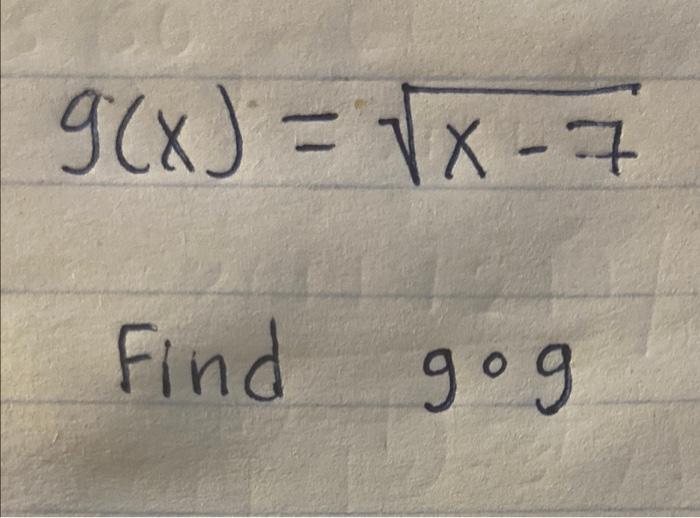 g(x) = √x - 7
Find g∘g